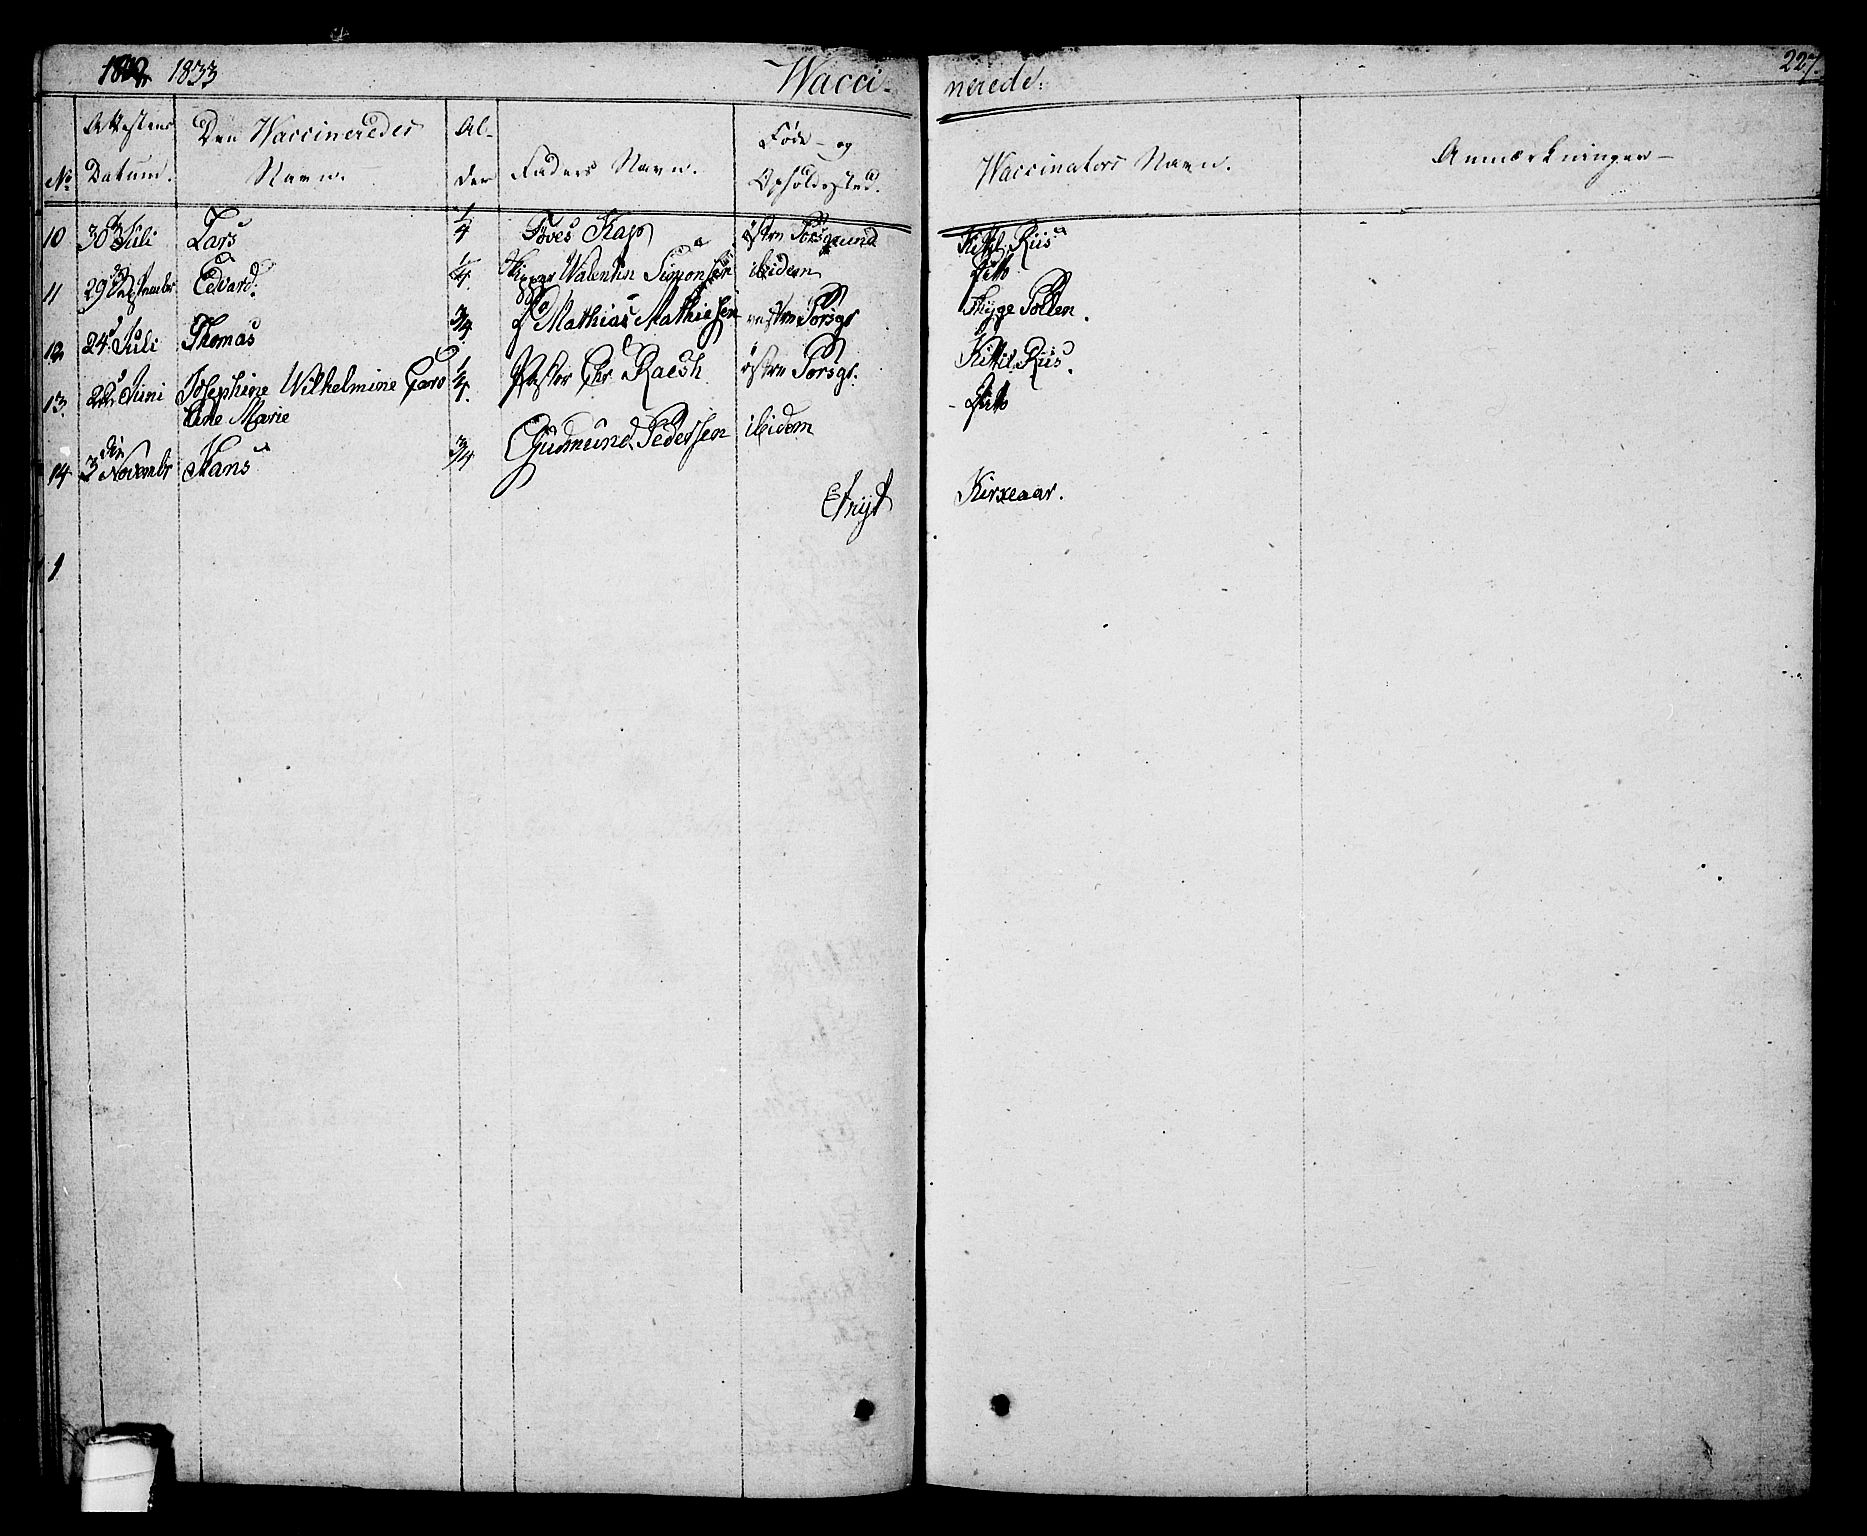 1833 Wacci- nerede. 227.
No Attestens Datum. Den Vaccineredes Navn. Al- der Faders Navn. Føde- og Opholdssted. Vaccinators Navn. Anmærkninger
10 30 Juli Lars 1/4 Töves Kap östre Porsgrund Kittil Riis
11 29 September Edvard. 1/4 Skipper Valentin Simonsen ibidem Dito
12 24 Juli Thomas 3/4 Do Mathias Mathiesen vestre Porsgr Thyge Polten.
13. 22 Juni Josephine Wilhelmine Caro 1/4. Pastor Chr. Raesh östre Porsgr. Kittil Riis.
Ane Marie Dito
14 3 Novembr Hans 3/4 Gudmund Pedersen ibidem
Kirxeaar.
1